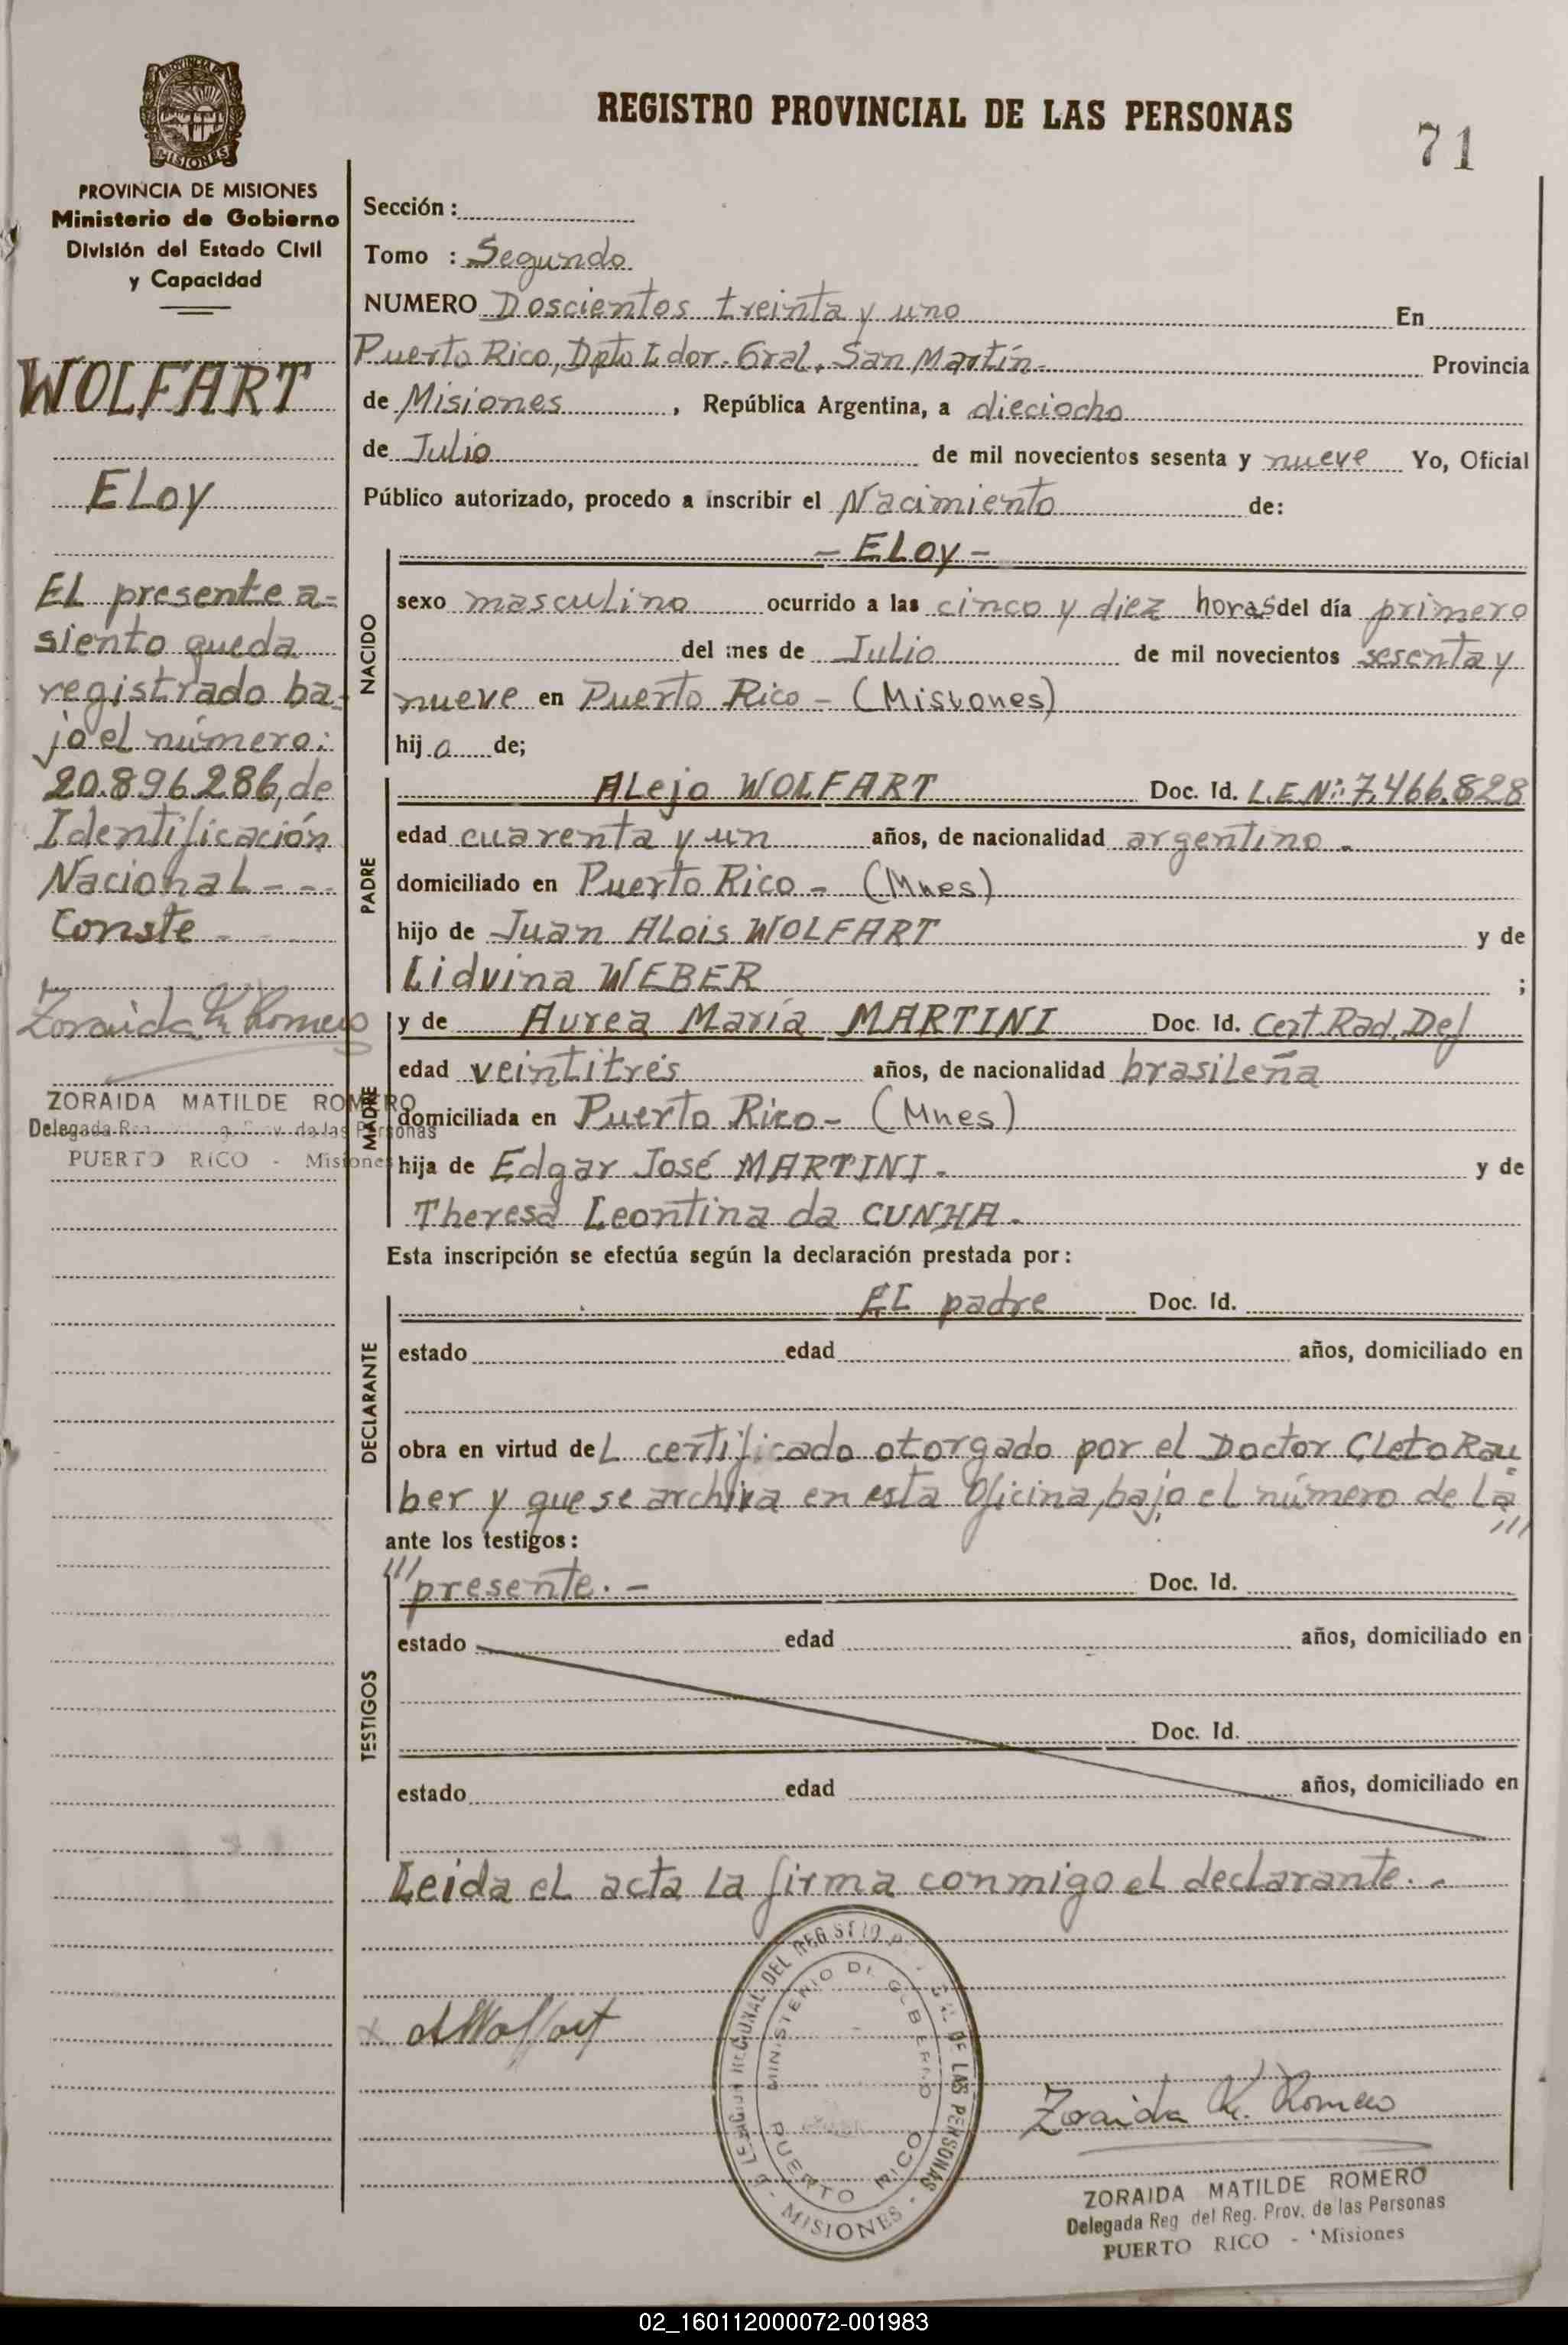 REGISTRO PROVINCIAL DE LAS PERSONAS
71
PROVINCIA DE
MISIONES
PROVINCIA DE MISIONES
Ministerio de Gobierno
División del Estado Civil
y Capacidad
WOLFART
ELoy
EL presente a=
siento queda
registrado ba=
jo el número:
20.896.286, de
Identificación
Nacional - - -
Conste - - -
Zoraida M. Romero
ZORAIDA MATILDE ROMERO
Delegada Reg. Prov. de las Personas
PUERTO RICO - Misiones
Sección :
Tomo : Segundo
NUMERO Doscientos treinta y uno En
Puerto Rico, Dpto Ldor. Gral. San Martín - Provincia
de Misiones , República Argentina, a dieciocho
de Julio de mil novecientos sesenta y nueve Yo, Oficial
Público autorizado, procedo a inscribir el Nacimiento de:
NACIDO
- ELoy -
sexo masculino ocurrido a las cinco y diez horas del día primero
del mes de Julio de mil novecientos sesenta y
nueve en Puerto Rico - (Misiones)
hijo de;
PADRE
ALejo WOLFART Doc. Id. L.E.Nº: 7.466.828
edad cuarenta y un años, de nacionalidad argentino -
domiciliado en Puerto Rico - (Mnes)
hijo de Juan ALois WOLFART y de
Lidvina WEBER ;
MADRE
y de Aurea María MARTINI Doc. Id. Cert Rad. Def
edad veintitrés años, de nacionalidad brasileña
domiciliada en Puerto Rico - (Mnes)
hija de Edgar José MARTINI - y de
Theresa Leontina da CUNHA.
Esta inscripción se efectúa según la declaración prestada por :
DECLARANTE
EL padre Doc. Id.
estado edad años, domiciliado en
obra en virtud deL certificado otorgado por el Doctor CLeto Rau
ber y que se archiva en esta Oficina, bajo el número de La
///
ante los testigos :
TESTIGOS
/// presente. - Doc. Id.
estado edad años, domiciliado en
Doc. Id.
estado edad años, domiciliado en
Leida eL acta La firma conmigo eL declarante. -
x AWolfart
DEL REGISTRO DE LAS PERSONAS
MINISTERIO DE GOBIERNO
PUERTO RICO
- MISIONES -
Zoraida M. Romero
ZORAIDA MATILDE ROMERO
Delegada Reg del Reg. Prov. de las Personas
PUERTO RICO - Misiones
02_160112000072-001983